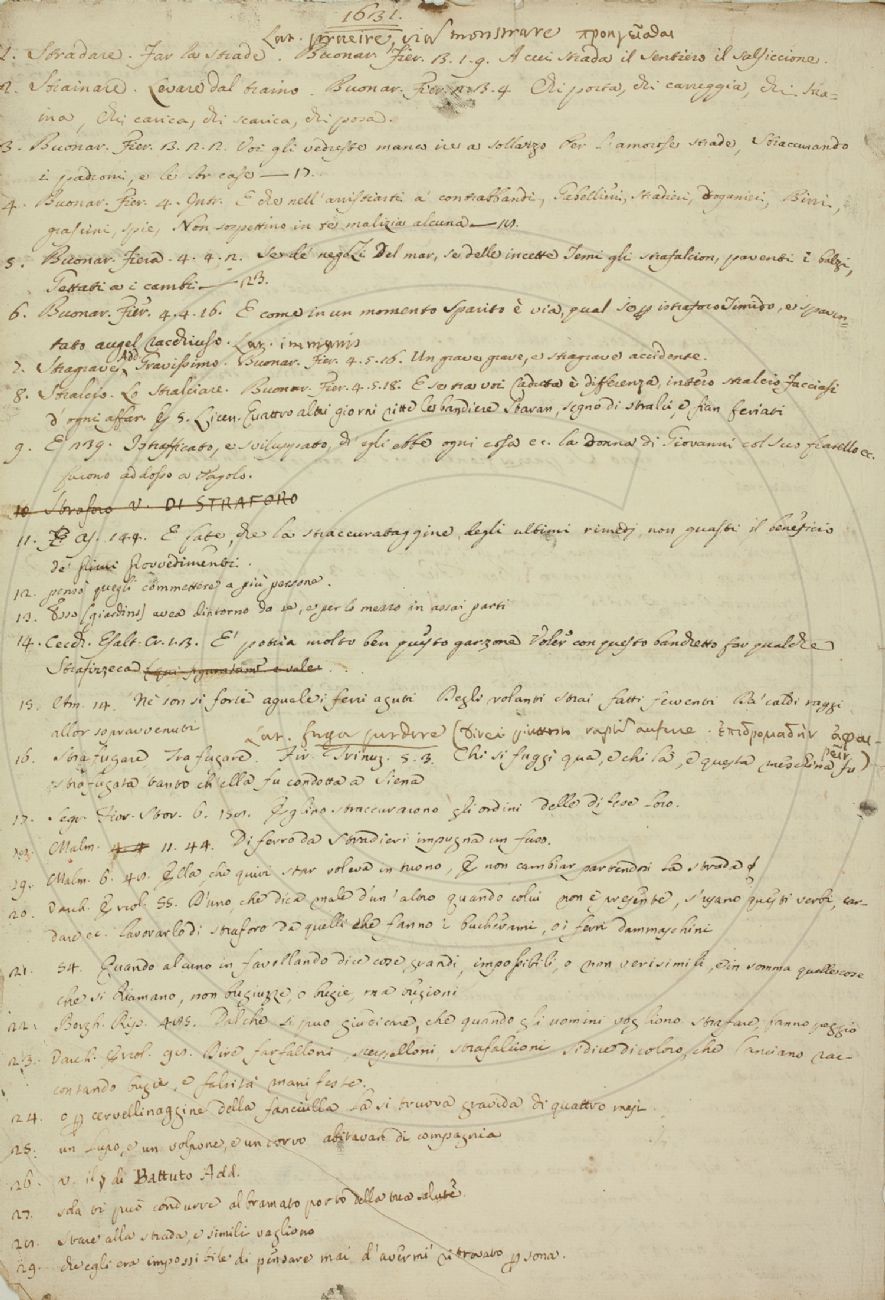 1631.
Lat. praeire, vias monstrare
1. Stradare. Far la strade. Buonar. Fier. 13. 1. 9. A cui strada il sentiero il Salsiccione.
2. Strainare. Levare dal traino. Buonar. Fier. 13. 4 Chi porta, chi carreggia, chi stra-
ina, chi carica, chi scarica, chi posa.
3. Buonar. Fier. 13. 12. 12. Voi gli vedreste mane ire a sollazzo Per l'amorose strade, Straccurando
i padroni, e le lor case — 17.
4. Buonar. Fier. 4. Intr. E che nell'arristiarti a' contrabbandi, Gabellieri, stadieri, Doganieri, Birri,
grascini, spie, Non sospettino in te malizia alcuna —
5. Buonar. Fiera. 4. 4. 12. Se de' negozi Del mar, se delle incette Temi gli strafalcion, paventi i balzi,
Gettati a i cambi — 123.
6. Buonar. Fier. 4. 4. 26. E come in un momento sparito è via, qual se p istraforo Timido, e spaven-
tato augel racchiuso. Lat. immanis
7. Stragrave, Add. Gravissimo. Buonar. Fier. 4. 5. 16. Un grave, grave, e stragrave accidente.
8. Stralcio. Lo stralciare. Buonar. Fier. 4. 5. 18. E se tra voi caduta è differenza, intero stralcio facciasi
d'ogni affar. E 5. Licen. Quattro altri giorni citte le bandiere Staran, segno di stralci, e fian feriati
9. E 139. Istrafficato, e sviluppato, ch'egli ebbe ogni cosa ec. la Donna di Giovanni col suo fratello ec.
furono addosso a Pagolo.
10 Straforo V. DI STRAFORO
11. Ag. 144. E fate, che la straccurataggine degli ultimi rimedj non guasti il benefício
de' primi provvedimenti.
12. pensò quegli commettere a più persone.
13. Esso [giardino] avea dintorno da sé, e per lo mezzo in assai parti
14. Cecch. Esalt. Cr. 1. 3. E' potria molto ben questo garzone voler con questo banchetto far qualche
Strafizzeca
15. Alm. 14. Né son sì forte aguale i ferri aguti Degli volanti strai fatti ferventi Da' caldi raggi
allor sopravvenuti Lat. fuga perdere (Direi piuttosto raptim auferre. ἐπιδρομάδην ἀφαι-
16. Strafugare. Trafugare. Fir. Trinuz. 5. 3. Chi si fuggì qua, e chi là, e questa meschina fu
strafugata tanto ch'ella fu condotta a Siena
17. Segr. Fior. Stor. 6. Eglino straccurarono gli ordini delle difese loro.
Malm. 11. 44. Di ferro da stradieri impugna un fuso.
19. Malm. 6. Ella che quivi star voleva in tuono, E non cambiar, partendosi la strada
20. Varch. Ercol. 55. D'uno, che dica male d'un'altro quando colui non è presente, s'usano questi verbi, car-
dare ec. lavorarlo di straforo da quelli che fanno i bucherami, o i ferri dommaschini
21. 54. Quando alcuno in favellando dice cose grandi, impossibili, o non verisimili, e in somma quelle cose
che si chiamano, non bugiuzze, o bugie, ma bugioni
22. Borgh. Rip. Dal che si può giudicare, che quando gli uomini vogliono strafare, fanno peggio
23. Varch. Ercol. Dire farfalloni, scerpelloni, strafalcioni si dice di coloro, che lanciano rac-
contando bugie, e falsità manifeste.
24. o p cervellinaggine della fanciulla la si truova gravida di quattro mesi
25. un Lupo, e un volpone, e un corvo abitavan di compagnia
26. v. il § di Battuto Add.
27. sola ti può condurre al bramato porto della tua salute.
stare alla strada, e simili vagliono
29. che egli era impossibile di pensare mai d'avermi ritrovato p sona.